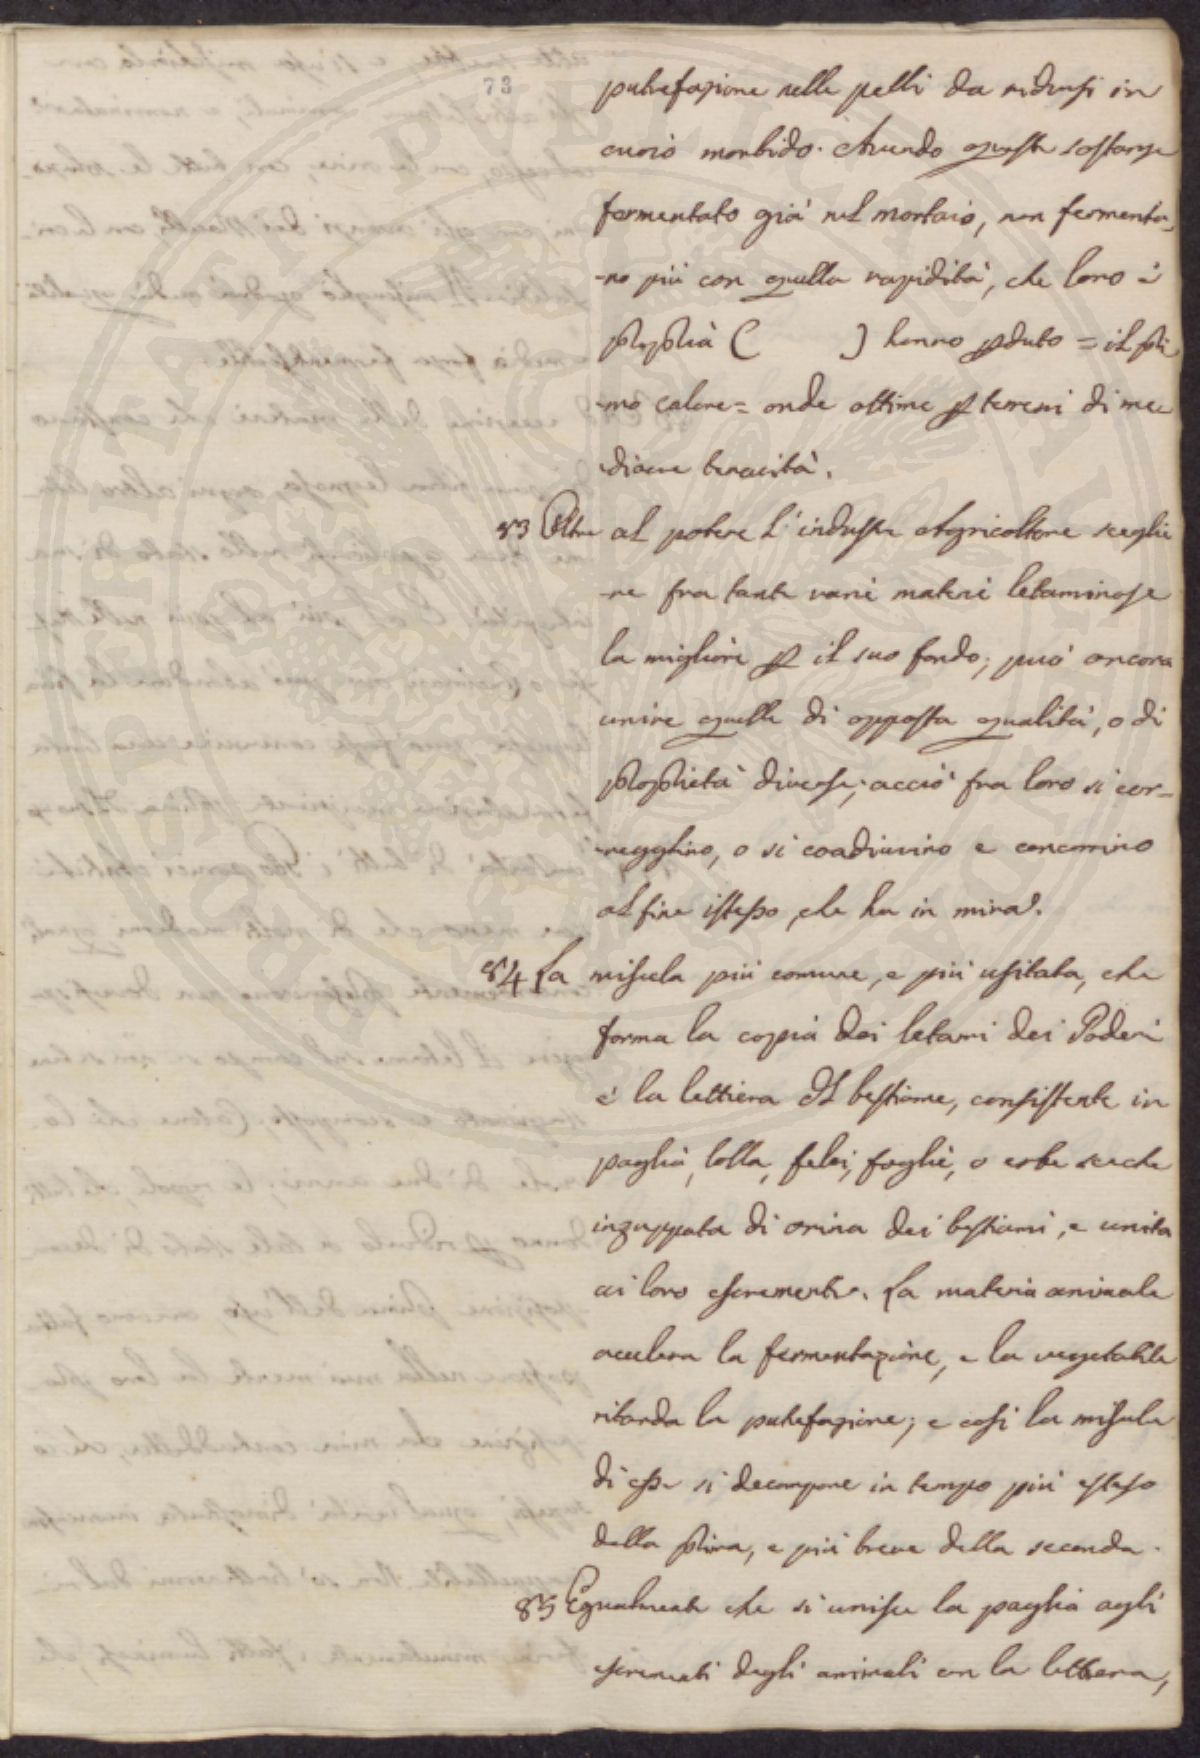 73
putrefazione nelle pelli da ridursi in
cuoio morbido. Avendo queste sostanze
fermentato già nel mortaio, non fermenta-
-no più con quella rapidità, che loro è
propria ( ) hanno perduto = il pri
-mo calore = onde ottime per terreni di me
diocre tenacità.
83 Oltre al potere l'industre Agricoltore sceglie
-re fra tante varie materie letaminose
la migliore per il suo fondo; può ancora
unire quelle di opposta qualità, o di
proprietà diverse; acciò fra loro si cor-
-regghino, o si coadiuvino e concorrino
al fine istesso, che ha in mira.
84 La miscela più comune, e più usitata, che
forma la copia dei letami dei Poderi
è la lettiera del bestiame, consistente in
paglia, lolla, felci, foglie, o erbe secche
inzuppata di orina dei bestiami, e unita
ai loro escrementi. La materia animale
accelera la fermentazione, e la vegetabile
ritarda la putrefazione; e così la miscela
di esse si decompone in tempo più esteso
della prima, e più breve della seconda.
85 Egualmente che si unisce la paglia agli
escrementi degli animali con la lettiera,